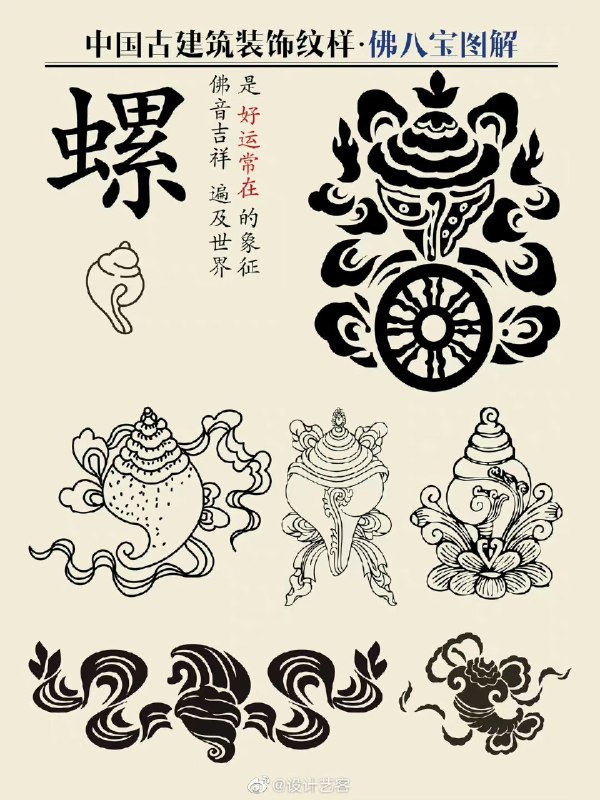 中国古建筑装饰纹样·佛八宝图解
螺
是好运常在的象征
佛音吉祥 遍及世界
@设计艺客